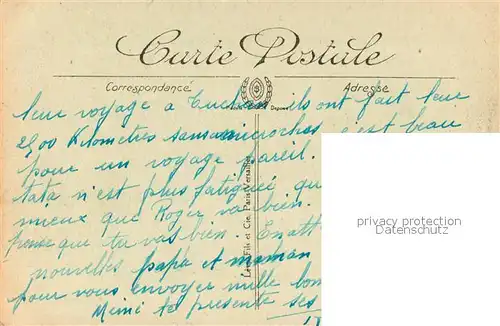 Carte Postale
Correspondance
Adresse
leur voyage a ils ont fait leur
2500 Kilomètres sans c'est beau
pour un voyage pareil.
tata n'est plus fatiguée qu
mieux que Roger va bien.
que tu vas bien. En att
nouvelles papa et maman
pour vous envoyer mille bon
Mimi te presente ses
privacy protection
Lévy Fils et Cie, Paris-Versailles